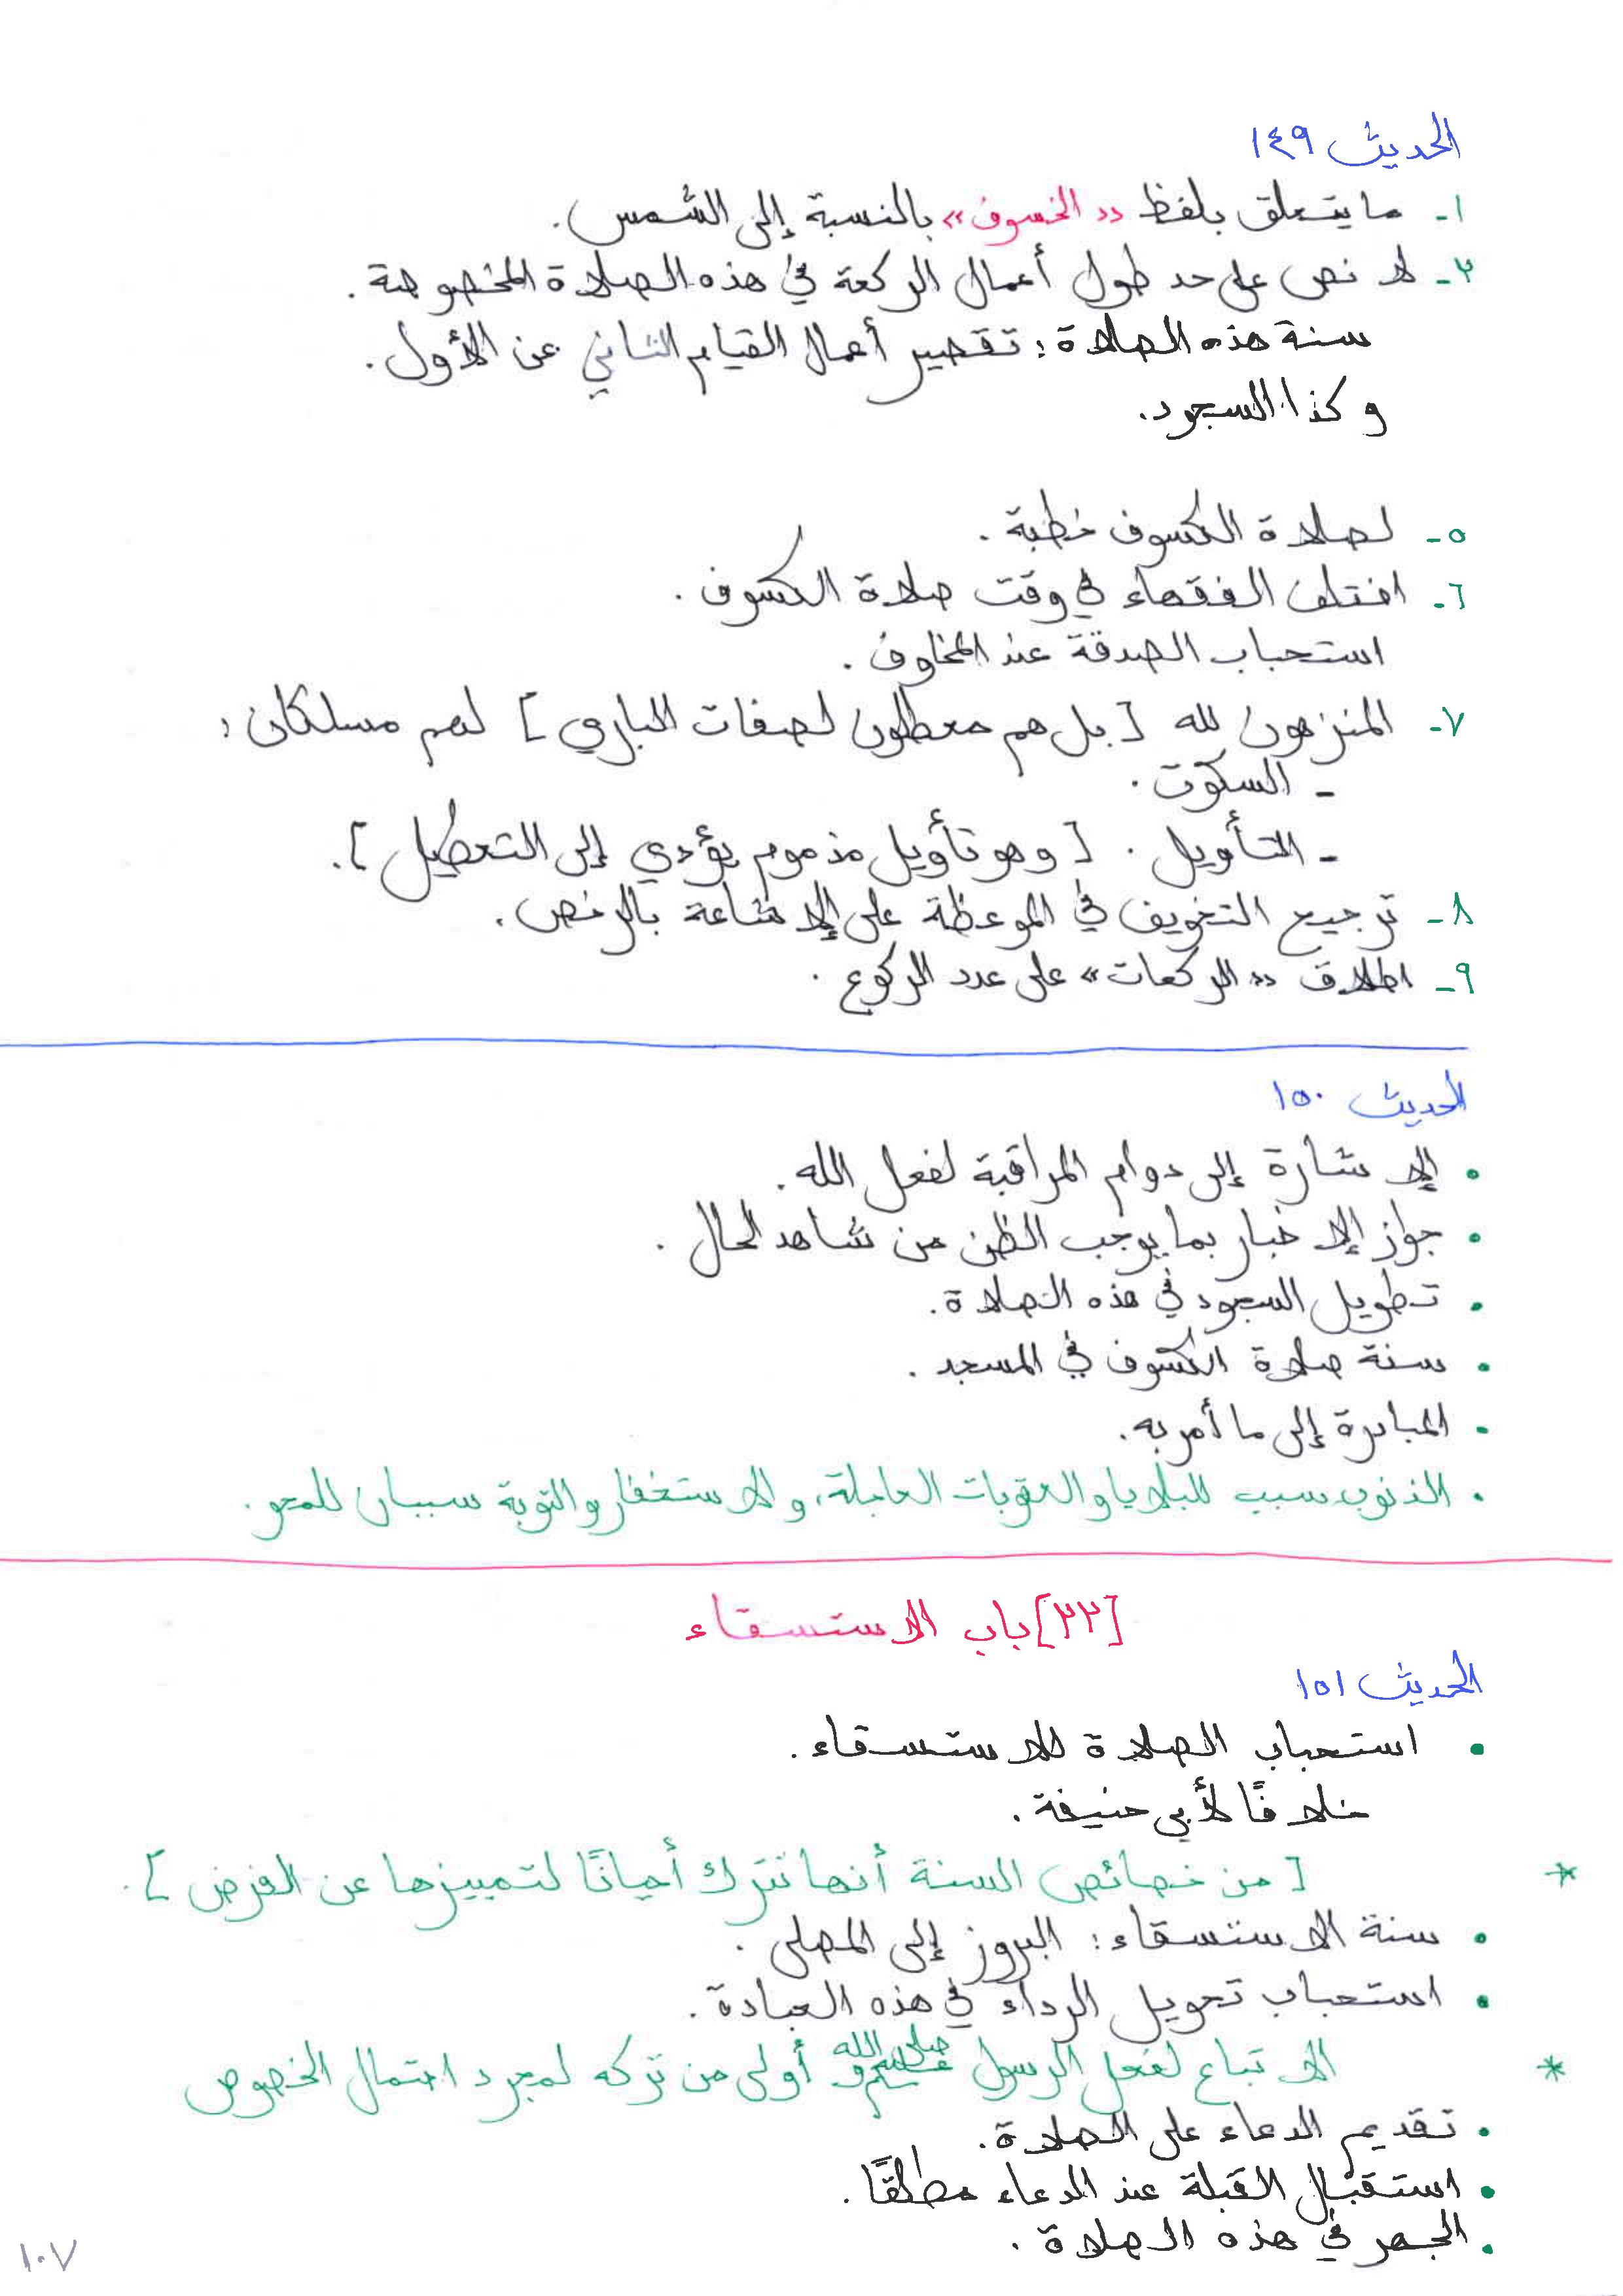 الحديث ١٤٩
١- ما يتعلق بلفظ «الخسوف» بالنسبة إلى الشمس.
٢- لا نص على حد طول أعمال الركعة في هذه الصلاة المخصوصة.
سنة هذه الصلاة: تقصير أعمال القيام الثاني عن الأول.
وكذا السجود.
٥- لصلاة الكسوف خطبة.
٦- اختلف الفقهاء في وقت صلاة الكسوف.
استحباب الصدقة عند المخاوف.
٧- المنزهون لله [بل هم معطلون لصفات الباري] لهم مسلكان:
- السكوت.
- التأويل. [وهو تأويل مذموم يؤدي إلى التعطيل].
٨- ترجيح التخويف في الموعظة على الإشاعة بالرخص.
٩- اطلاق «الركعات» على عدد الركوع.
الحديث ١٥٠
• الإشارة إلى دوام المراقبة لفعل الله.
• جواز الإخبار بما يوجب الظن من شاهد الحال.
• تطويل السجود في هذه الصلاة.
• سنة صلاة الكسوف في المسجد.
• المبادرة إلى ما أمر به.
• الذنوب سبب للبلايا والعقوبات العاجلة، والاستغفار والتوبة سببان للمحو.
[٢٢] باب الاستسقاء
الحديث ١٥١
• استحباب الصلاة للاستسقاء.
خلافًا لأبي حنيفة.
* [من خصائص السنة أنها تترك أحيانًا لتمييزها عن الفرض].
• سنة الاستسقاء: البروز إلى المصلى.
• استحباب تحويل الرداء في هذه العبادة.
* الاتباع لفعل الرسول صلى الله عليه وسلم أولى من تركه لمجرد احتمال الخصوص
• تقديم الدعاء على الصلاة.
• استقبال القبلة عند الدعاء مطلقًا.
• الجهر في هذه الصلاة.
١٠٧